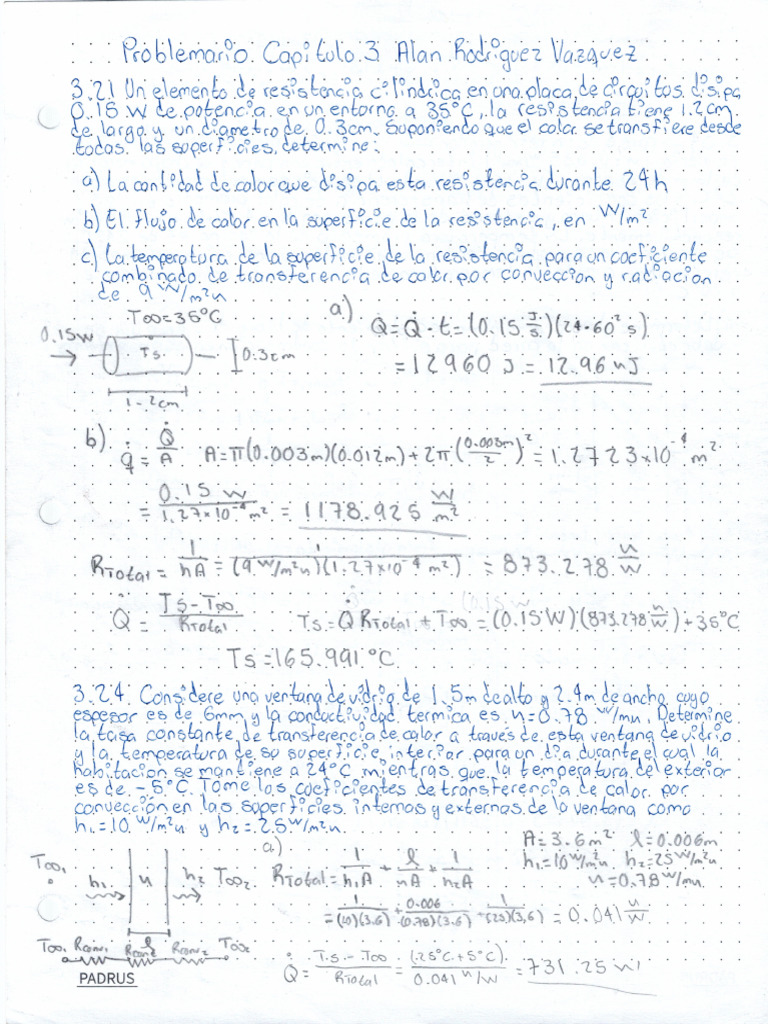 Problemario Capitulo 3 Alan Rodriguez Vazquez
3.21 Un elemento de resistencia cilindrica en una placa de circuitos disipa
0.15 W de potencia en un entorno a 35°C, la resistencia tiene 1.2cm
de largo y un diametro de 0.3cm. Suponiendo que el calor se transfiere desde
todas las superficies, determine:
a) La cantidad de calor que disipa esta resistencia durante 24h
b) El flujo de calor en la superficie de la resistencia, en W/m²
c) La temperatura de la superficie de la resistencia para un coeficiente
combinado de transferencia de calor por conveccion y radiacion
de 9 W/m²k
T∞=35°C
0.15W
Ts
0.3cm
1.2cm
a)
Q=Q̇·t=(0.15 J/s)(24·60² s)
=12960 J = 12.96 kJ
b)
q̇ = Q̇/A A=π(0.003m)(0.012m)+2π(0.003m/2)²=1.2723x10⁻⁴ m²
= 0.15 W / 1.27x10⁻⁴ m² = 1178.925 W/m²
RTotal = 1/hA = 1/(9 W/m²k)(1.27x10⁻⁴ m²) = 873.278 k/W
Q̇ = Ts-T∞/RTotal Ts=Q̇ RTotal + T∞ =(0.15W)(873.278 k/W)+35°C
Ts=165.991°C
3.24. Considere una ventana de vidrio de 1.5m de alto y 2.4m de ancho cuyo
espesor es de 6mm y la conductividad termica es k=0.78 W/mk. Determine
la tasa constante de transferencia de calor a traves de esta ventana de vidrio
y la temperatura de su superficie interior para un dia durante el cual la
habitacion se mantiene a 24°C mientras que la temperatura del exterior
es de -5°C. Tome los coeficientes de transferencia de calor por
conveccion en las superficies internas y externas de la ventana como
h₁=10 W/m²k y h₂=25 W/m²k
a)
A=3.6m² l=0.006m
h₁=10 W/m²k h₂=25 W/m²k
k=0.78 W/mk
T∞₁
h₁
k
h₂
T∞₂
RTotal= 1/h₁A + l/kA + 1/h₂A
= 1/(10)(3.6) + 0.006/(0.78)(3.6) + 1/(25)(3.6) = 0.041 k/W
T∞₁ Rconv₁ l Rcond Rconv₂ T∞₂
Q̇ = Ts-T∞/RTotal = (25°C+5°C)/0.041 k/W = 731.25 W
PADRUS